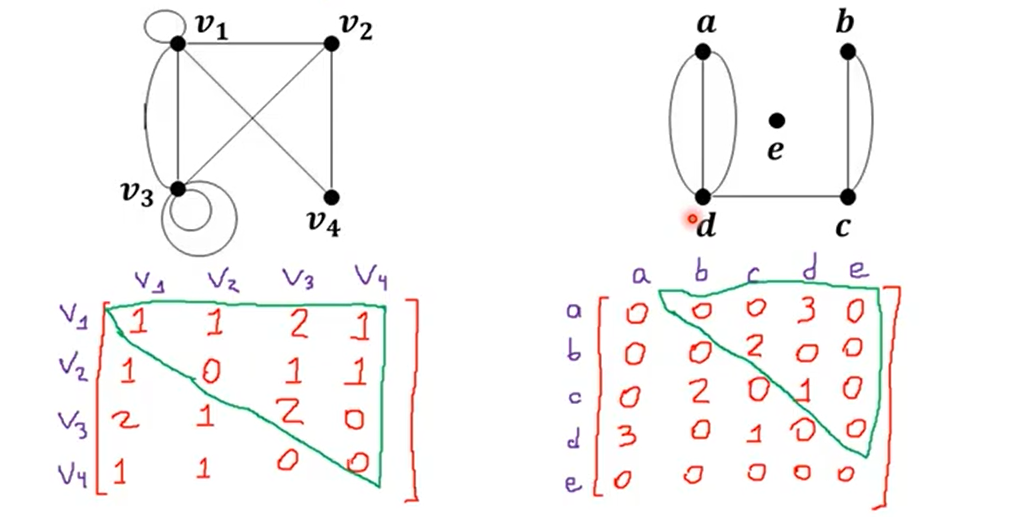 v₁ v₂
v₃
v₄
a b
e
d c
V₁ V₂ V₃ V₄
V₁ 1 1 2 1
V₂ 1 0 1 1
V₃ 2 1 2 0
V₄ 1 1 0 0
a b c d e
a 0 0 0 3 0
b 0 0 2 0 0
c 0 2 0 1 0
d 3 0 1 0 0
e 0 0 0 0 0